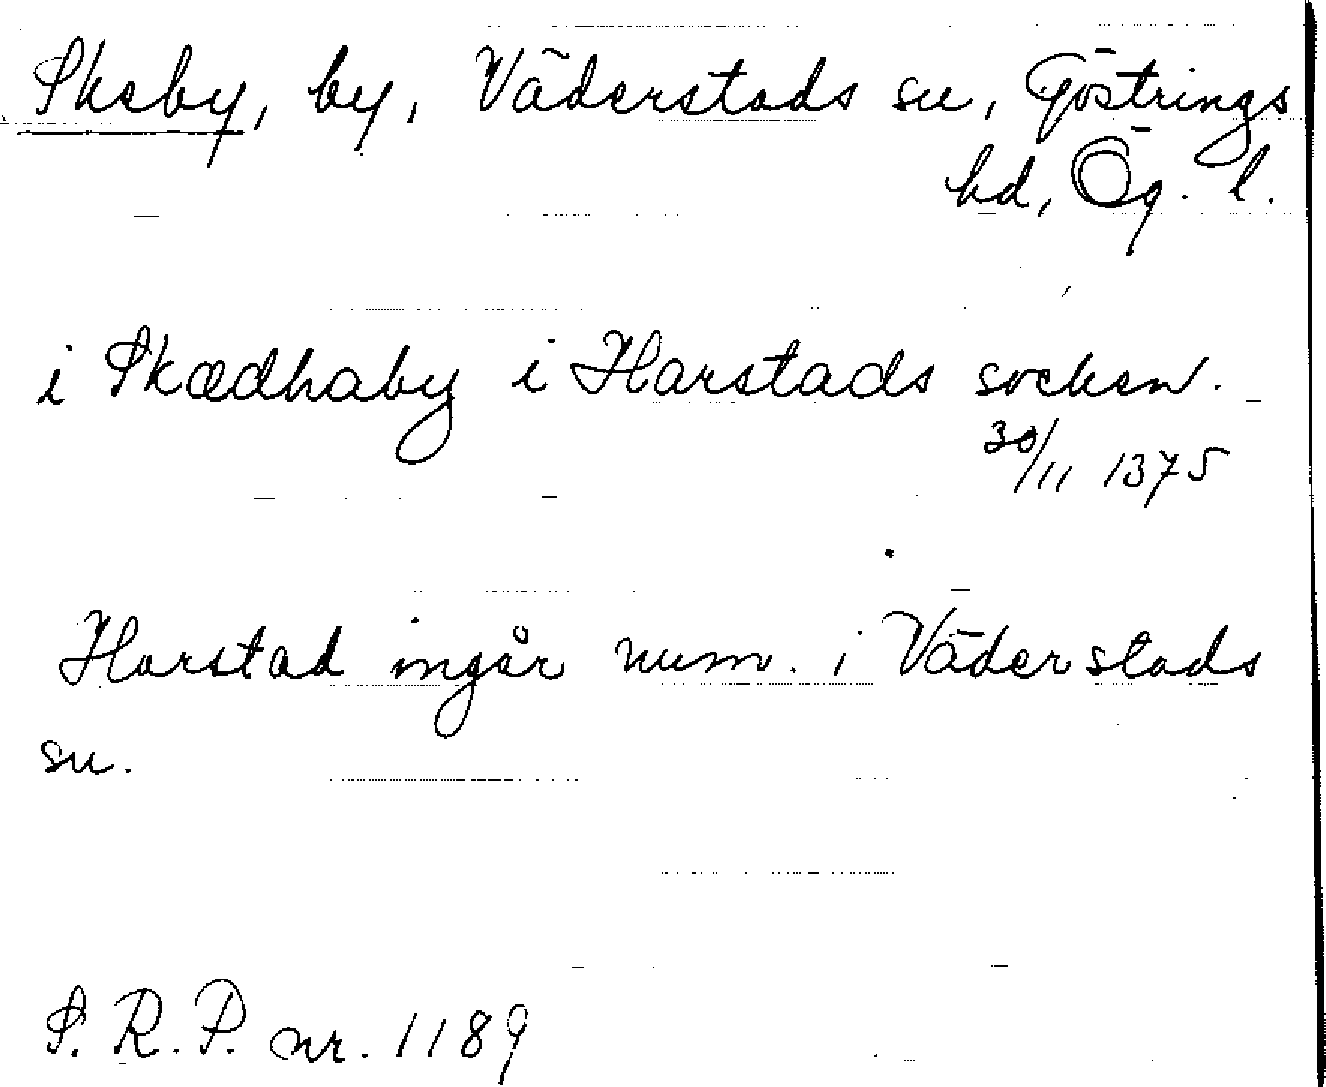 Skeby, by, Väderstads sn, Göstrings
hd, Ög. l.
i Skædhaby i Harstads socken.
30/11 1375
Harstad ingår num. i Väderstads
sn.
S. R. P. nr. 1189